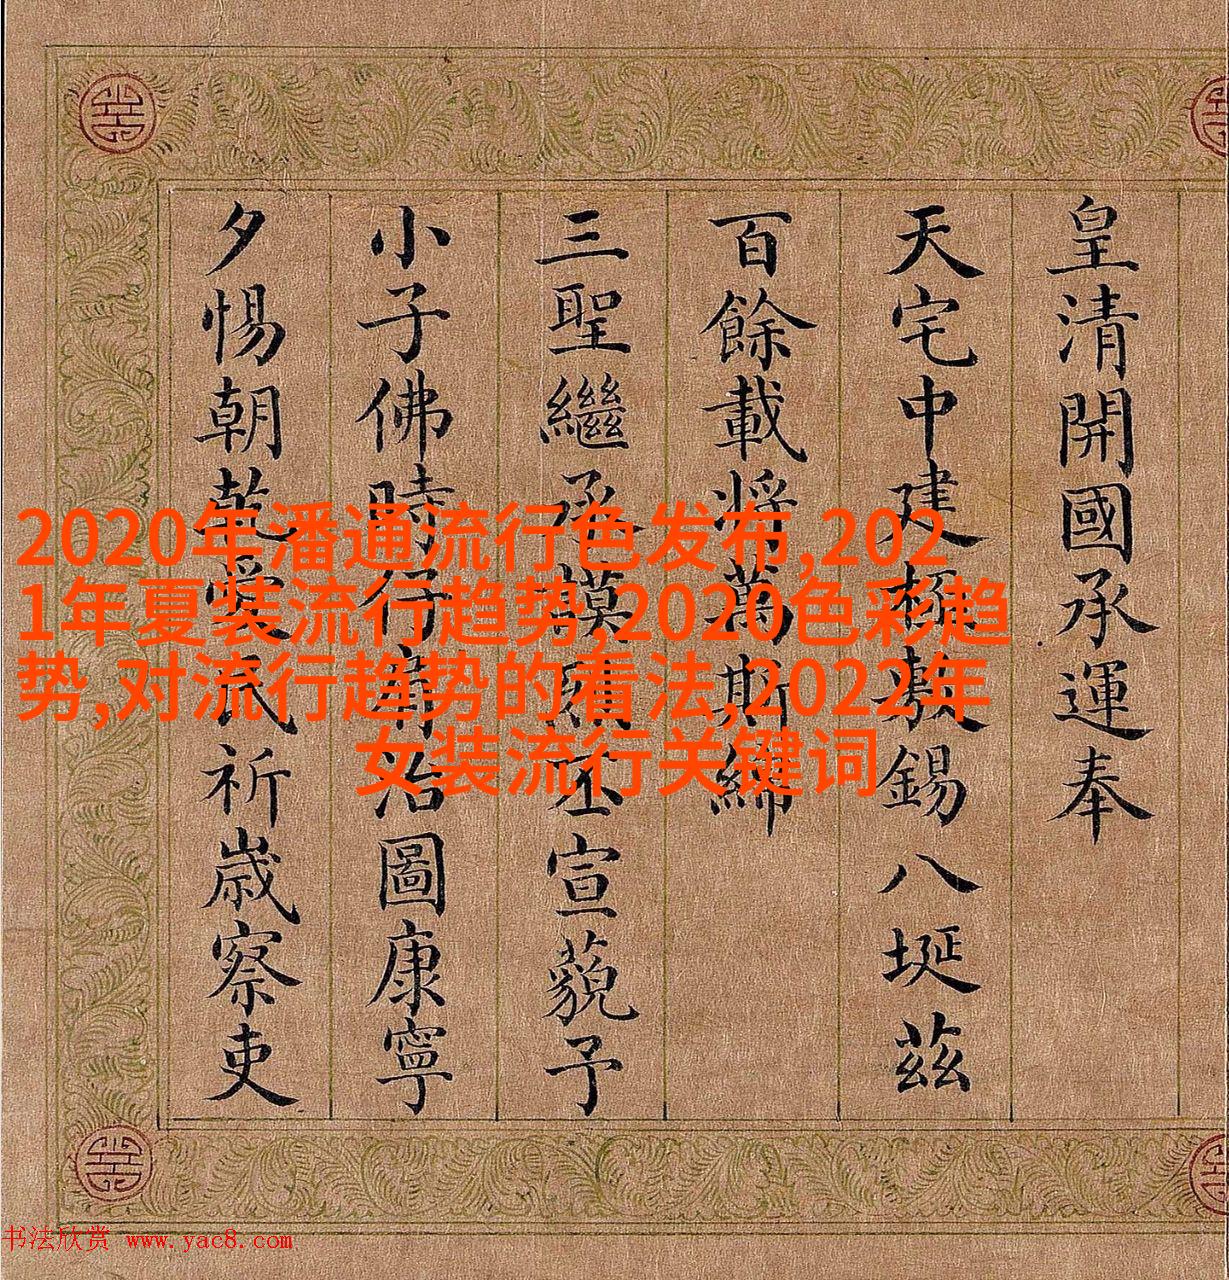 皇清開國承運奉
天宅中建極敷錫八埏茲
百餘載將萬斯綿
三聖繼承丕宣藐予
小子佛時仔肩治圖康寧
夕惕朝乾愛民祈歲察吏
2020年潘通流行色发布,202
1年夏装流行趋势,2020色彩趋
势,对流行趋势的看法,2022年
女装流行关键词
书法欣赏 www.yac8.com